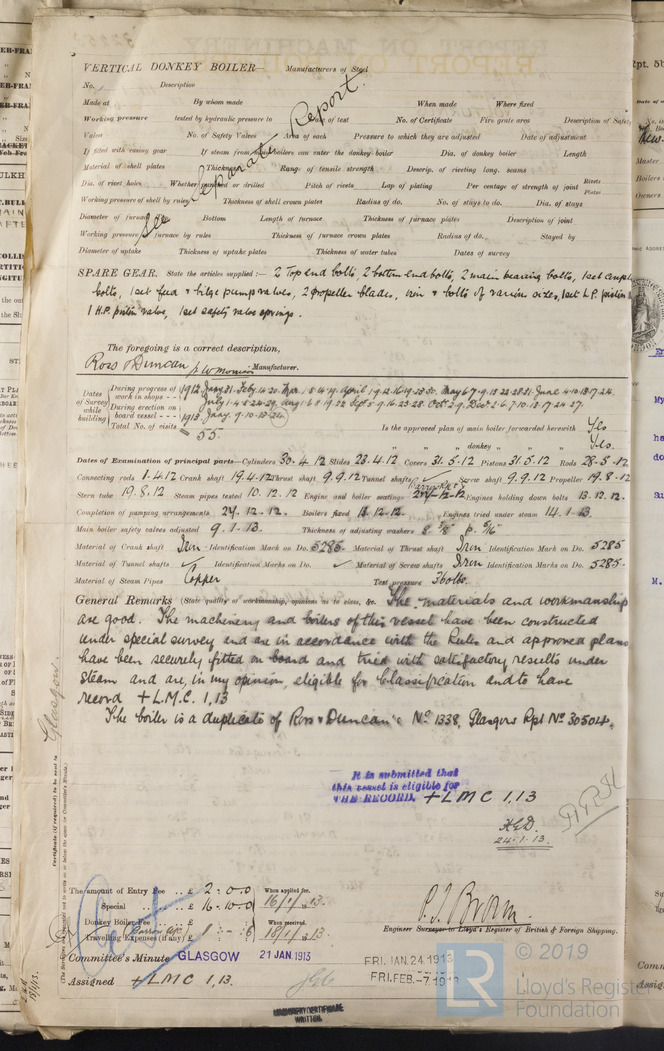 VERTICAL DONKEY BOILER— Manufacturers of Steel
No. Description
Made at By whom made When made Where fixed
Working pressure tested by hydraulic pressure to of test No. of Certificate Fire grate area Description of Safety
Valves No. of Safety Valves Area of each Pressure to which they are adjusted Date of adjustment
If fitted with easing gear If steam from main boilers can enter the donkey boiler Dia. of donkey boiler Length
Material of shell plates Thickness Range of tensile strength Descrip. of riveting long. seams
Dia. of rivet holes Whether punched or drilled Pitch of rivets Lap of plating Per centage of strength of joint Rivets Plates
Working pressure of shell by rules Thickness of shell crown plates Radius of do. No. of stays to do. Dia. of stays
Diameter of furnace Bottom Length of furnace Thickness of furnace plates Description of joint
Working pressure of furnace by rules Thickness of furnace crown plates Radius of do. Stayed by
Diameter of uptake Thickness of uptake plates Thickness of water tubes Dates of survey
See Separate Report.
SPARE GEAR. State the articles supplied :— 2 Top end bolts, 2 bottom end bolts, 2 main bearing bolts, 1 set
bolts, 1 set feed & bilge pump valves, 2 propeller blades, iron & bolts of various sizes, 1 set L.P. piston
1 H.P. piston valve, 1 set safety valve springs.
The foregoing is a correct description,
Ross & Duncan Manufacturer.
Dates of Survey while building
During progress of work in shops - - 1912. Jany. 31. Feby. 14. 20. Mar. 1. 8. 14. 19. April 1. 9. 12. 16. 19. 23. 30. May 6. 7. 9. 15. 22. 28. 31. June 4. 10. 13. 17. 24.
During erection on board vessel - - - July 1. 4. 8. 24. 29. Aug 1. 6. 8. 19. 22. Sept. 5. 9. 16. 23. 28. Oct. 2. 9. Dec. 2. 6. 7. 10. 12. 17. 24. 27.
1913. Jany. 9. 10. 13.
Total No. of visits 55.
Is the approved plan of main boiler forwarded herewith Yes
" " " donkey " " " Yes.
Dates of Examination of principal parts—Cylinders 30.4.12 Slides 23.4.12 Covers 31.5.12 Pistons 31.5.12 Rods 28.5.12
Connecting rods 1.4.12 Crank shaft 19.4.12 Thrust shaft 9.9.12 Tunnel shafts Screw shaft 9.9.12 Propeller 19.8.12
Stern tube 19.8.12 Steam pipes tested 10.12.12 Engine and boiler seatings Engines holding down bolts 13.12.12.
Completion of pumping arrangements 24.12.12. Boilers fixed 13.12.12. Engines tried under steam 14.1.13.
Main boiler safety valves adjusted 9.1.13. Thickness of adjusting washers S 3/8" P. 5/16"
Material of Crank shaft Iron Identification Mark on Do. 5285 Material of Thrust shaft Iron Identification Mark on Do. 5285
Material of Tunnel shafts ✓ Identification Marks on Do. ✓ Material of Screw shafts Iron Identification Marks on Do. 5285.
Material of Steam Pipes Copper Test pressure 360 lbs.
General Remarks (State quality of workmanship, opinions as to class, &c. The materials and workmanship
are good. The machinery and boilers of this vessel have been constructed
under special survey and are in accordance with the Rules and approved plans
have been securely fitted on board and tried with satisfactory results under
steam and are, in my opinion, eligible for classification and to have
record + L.M.C. 1,13
The boiler is a duplicate of Ross & Duncan's No 1338, Glasgow Rpt No 30504.
It is submitted that
this vessel is eligible for
THE RECORD. + LMC 1,13
24.1.13.
Glasgow.
Certificate (if required) to be sent to
The amount of Entry Fee .. £ 2 : 0 . 0 When applied for.
Special .. £ 16 . 10 . 0 16/1/13.
Donkey Boiler Fee .. £ When received.
Travelling Expenses (if any) £ 1 : - : 6 18/1/13.
P. J. Brown
Engineer Surveyor to Lloyd's Register of British & Foreign Shipping.
Committee's Minute GLASGOW 21 JAN. 1913 FRI. JAN. 24. 1913
FRI. FEB. -7. 1913
Assigned + LMC 1,13.
MACHINERY CERTIFICATE
WRITTEN.
© 2019
LR
Lloyd's Register
Foundation